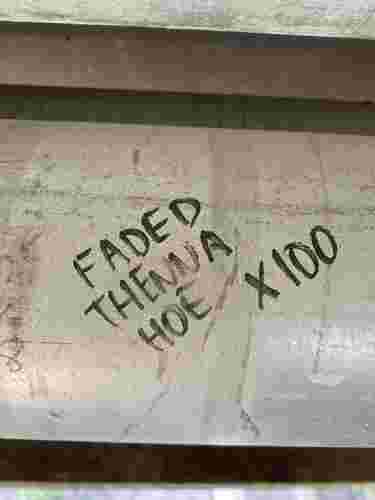 FADED
THENNA
HOE X100